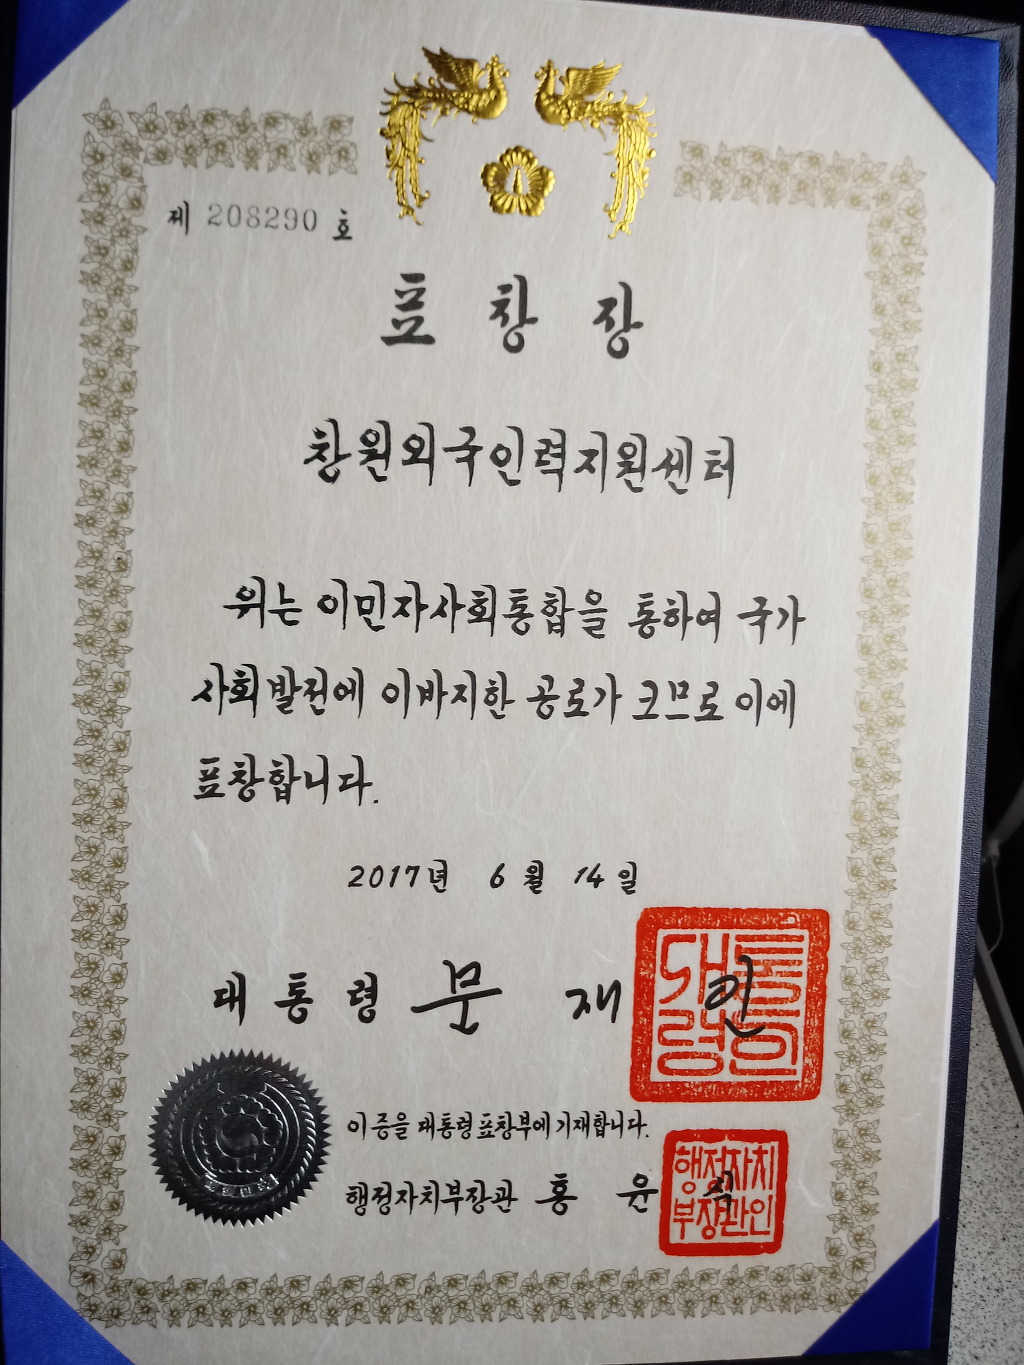 제 208290 호
표 창 장
창원외국인력지원센터
위는 이민자사회통합을 통하여 국가
사회발전에 이바지한 공로가 크므로 이에
표창합니다.
2017년 6월 14일
대 통 령 문 재 인
대통령의인
이 증을 대통령표창부에 기재합니다.
행정자치부장관 홍 윤 식
행정자치
부장관인